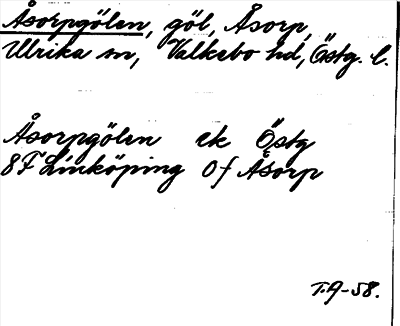 Åsorpgölen, göl, Åsorp,
Ulrika sn, Valkebo hd, Östg. l.
Åsorpgölen ek Östg
8F Linköping Of Åsorp
T.G-58.